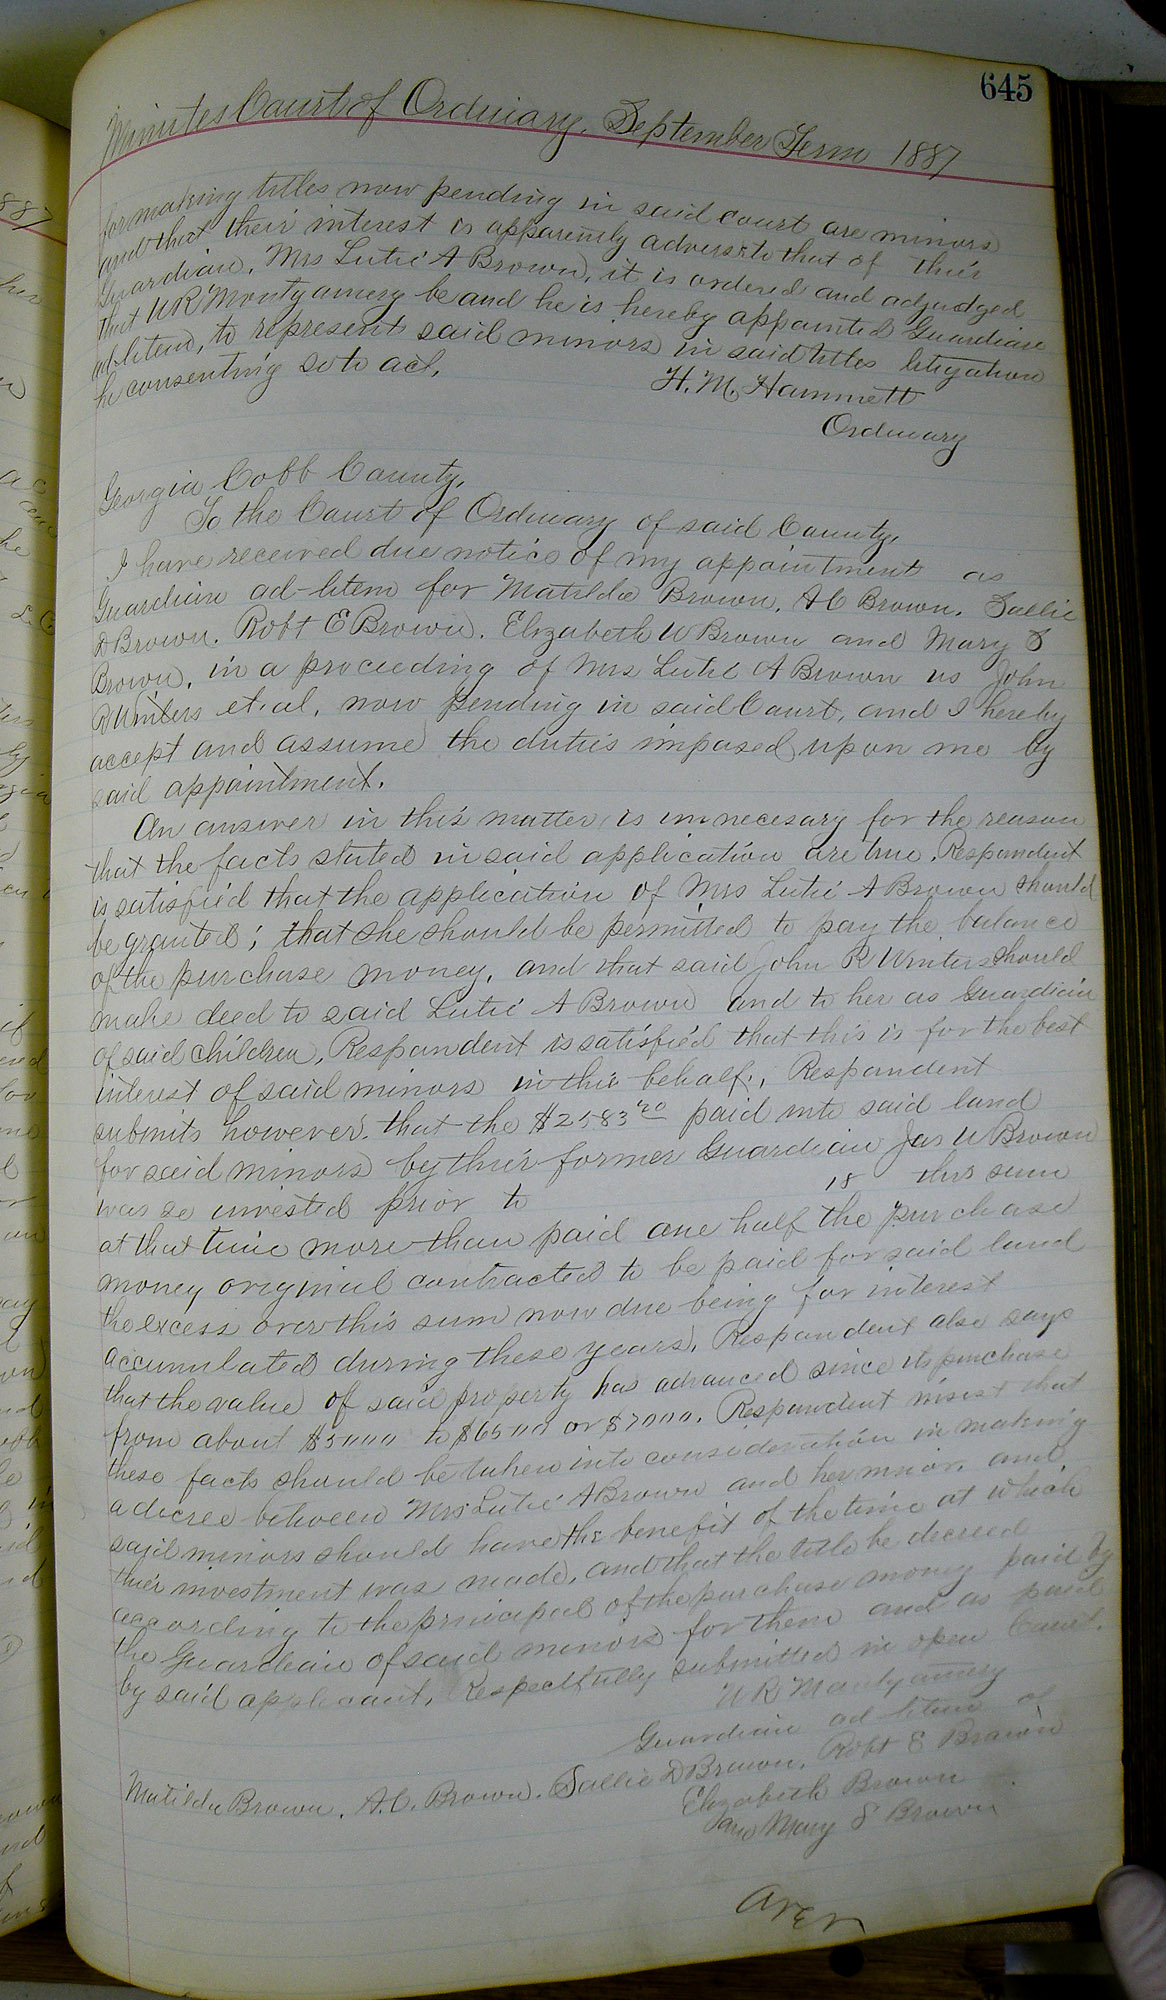 645
Minutes Court of Ordinary, September Term 1887
for making titles now pending in said court are minors
and that their interest is apparently adverse to that of their
Guardian, Mrs Lutie A Brown, it is ordered and adjudged
that W R Montgomery be and he is hereby appointed Guardian
ad-litem, to represent said minors in said titles litigation
he consenting so to act.
H. M. Hammett
Ordinary
Georgia Cobb County,
To the Court of Ordinary of said County,
I have received due notice of my appointment as
Guardian ad-litem for Matilda Brown, A C Brown, Sallie
D Brown, Robt E Brown, Elizabeth W Brown and Mary S
Brown, in a proceeding of Mrs Lutie A Brown vs John
R Winters et al, now pending in said Court, and I hereby
accept and assume the duties imposed upon me by
said appointment.
An answer in this matter is unnecesary for the reason
that the facts stated in said application are true. Respondent
is satisfied that the application of Mrs Lutie A Brown should
be granted; that she should be permitted to pay the balance
of the purchase money, and that said John R Winters should
make deed to said Lutie A Brown and to her as Guardian
of said children, Respondent is satisfied that this is for the best
interest of said minors in this behalf; Respondent
submits however, that the $2583 40 paid into said land
for said minors by their former Guardian Jas W Brown
was so invested prior to 18 this sum
at that time more than paid one half the purchase
money original contracted to be paid for said land
the excess over this sum now due being for interest
accumulated during these years, Respondent also says
that the value of said property has advanced since its purchase
from about $5000 to $6500 or $7000. Respondent insist that
these facts should be taken into consideration in making
a decree between Mrs Lutie A Brown and her minors, and
said minors should have the benefit of the time at which
their investment was made, and that the title be decreed
according to the principal of the purchase money paid by
the Guardian of said minors for them and as paid
by said applicant, Respectfully submitted in open Court.
W R Montgomery
Guardian ad litem of
Matilda Brown, A. C. Brown, Sallie D Brown, Robt E Brown
Elizabeth Brown
and Mary S Brown
over